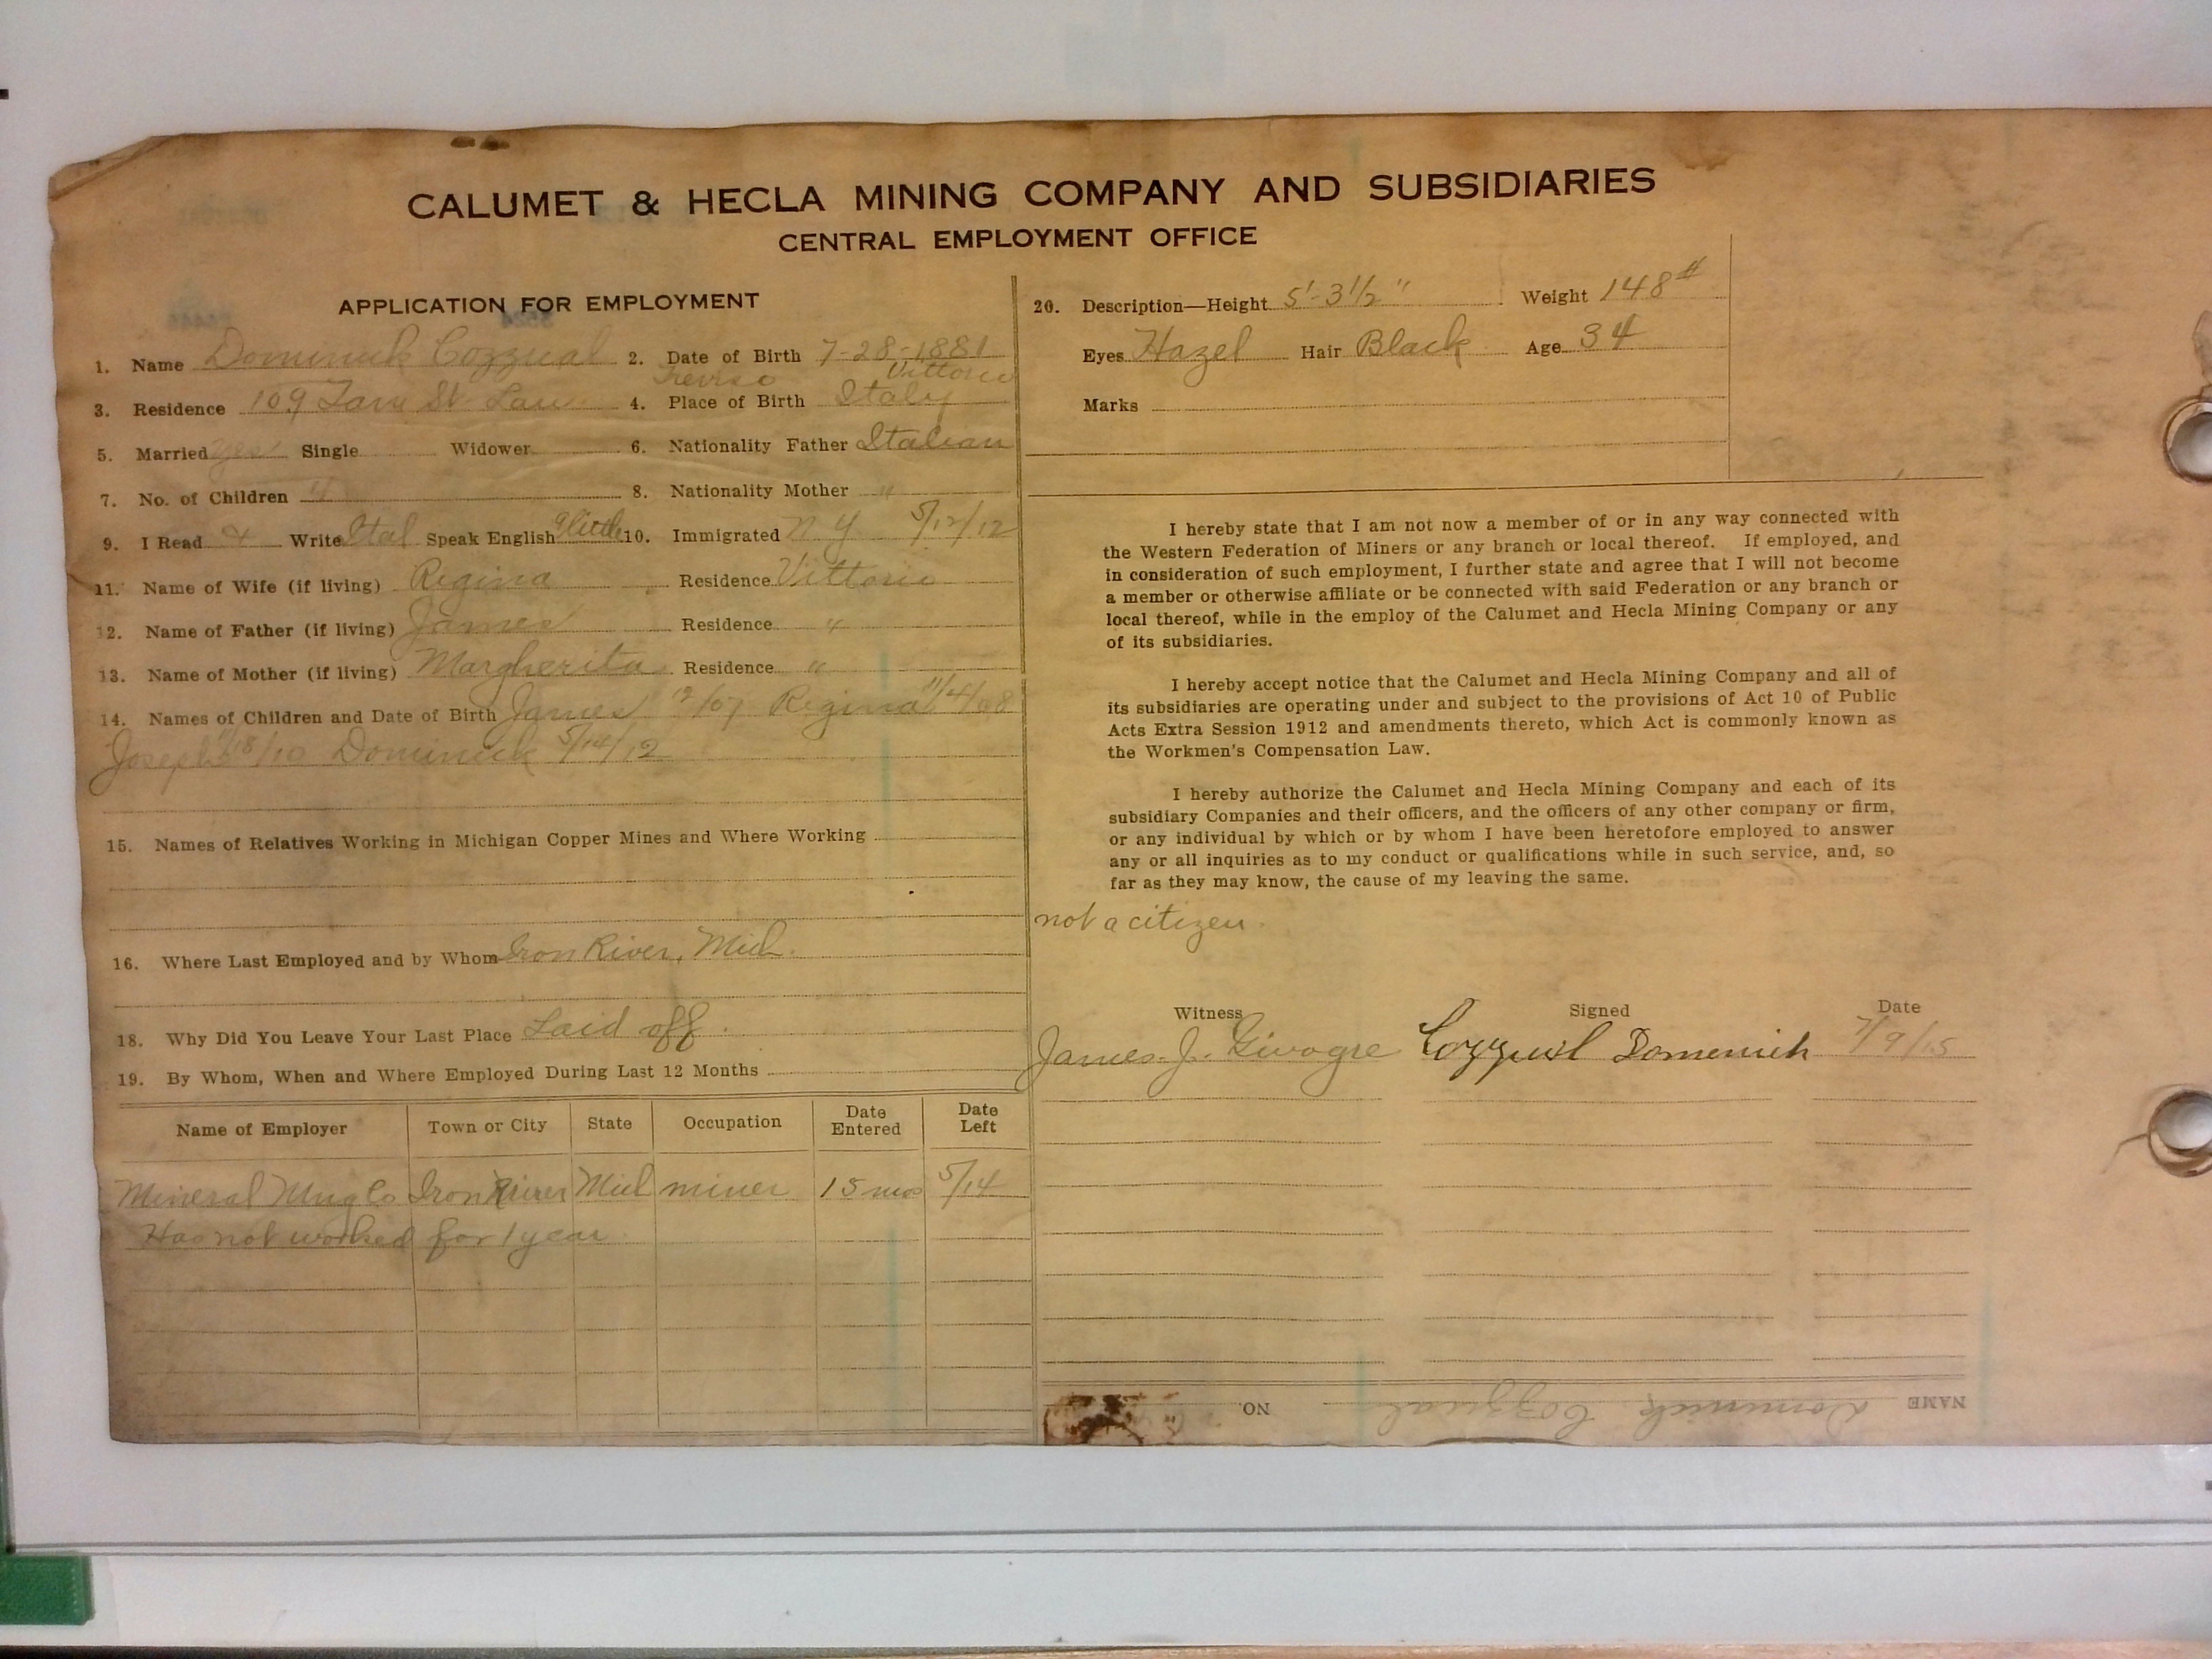 CALUMET & HECLA MINING COMPANY AND SUBSIDIARIES
CENTRAL EMPLOYMENT OFFICE
APPLICATION FOR EMPLOYMENT
1. Name Dominick Cozzual 2. Date of Birth 7-28-1881
Treviso Vittorio
3. Residence 109 St. 4. Place of Birth Italy
5. Married yes Single Widower 6. Nationality Father Italian
7. No. of Children 4 8. Nationality Mother "
9. I Read & Write Ital Speak English a little 10. Immigrated N Y 5/12/12
11. Name of Wife (if living) Regina Residence Vittorio
12. Name of Father (if living) James Residence "
13. Name of Mother (if living) Margherita Residence "
14. Names of Children and Date of Birth James 12/07 Regina 11/4/08
Joseph /18/10 Dominick 5/14/12
15. Names of Relatives Working in Michigan Copper Mines and Where Working
16. Where Last Employed and by Whom Iron River, Mich.
18. Why Did You Leave Your Last Place Laid off.
19. By Whom, When and Where Employed During Last 12 Months
Name of Employer Town or City State Occupation Date Entered Date Left
Mineral Mng Co Iron River Mich miner 15 mos 5/14
Has not worked for 1 year
20. Description—Height 5'-3 1/2" Weight 148#
Eyes Hazel Hair Black Age 34
Marks
I hereby state that I am not now a member of or in any way connected with
the Western Federation of Miners or any branch or local thereof. If employed, and
in consideration of such employment, I further state and agree that I will not become
a member or otherwise affiliate or be connected with said Federation or any branch or
local thereof, while in the employ of the Calumet and Hecla Mining Company or any
of its subsidiaries.
I hereby accept notice that the Calumet and Hecla Mining Company and all of
its subsidiaries are operating under and subject to the provisions of Act 10 of Public
Acts Extra Session 1912 and amendments thereto, which Act is commonly known as
the Workmen's Compensation Law.
I hereby authorize the Calumet and Hecla Mining Company and each of its
subsidiary Companies and their officers, and the officers of any other company or firm,
or any individual by which or by whom I have been heretofore employed to answer
any or all inquiries as to my conduct or qualifications while in such service, and, so
far as they may know, the cause of my leaving the same.
not a citizen.
Witness Signed Date
James. J. Cozzual Domenich 7/9/15
NAME Dominick Cozzual NO.